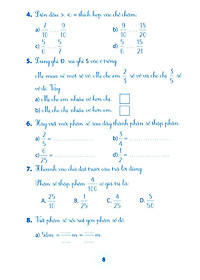 4. Điền dấu >; <; = thích hợp vào chỗ chấm:
a) 7/10 ... 9/10
b) 9/10 ... 15/20
c) 5/6 ... 5/7
d) 5/6 ... 15/21
5. Đúng ghi Đ, sai ghi S vào ô trống:
Mẹ mua về một số vở. Mẹ cho em 2/3 số vở và cho chị 3/5 số
vở đó. Vậy:
a) Mẹ cho em nhiều vở hơn chị.
b) Mẹ cho chị nhiều vở hơn em.
6. Hãy viết mỗi phân số sau đây thành phân số thập phân:
a) 2/5 =
b) 3/4 =
c) 6/25 =
d) 1/2 =
7. Khoanh vào chữ đặt trước câu trả lời đúng:
Phân số thập phân 4/100 có giá trị là:
A. 25/10
B. 1/25
C. 4/25
D. 5/50
8. Viết phân số rồi rút gọn phân số đó:
a) 50m = ... m = ... m.
8